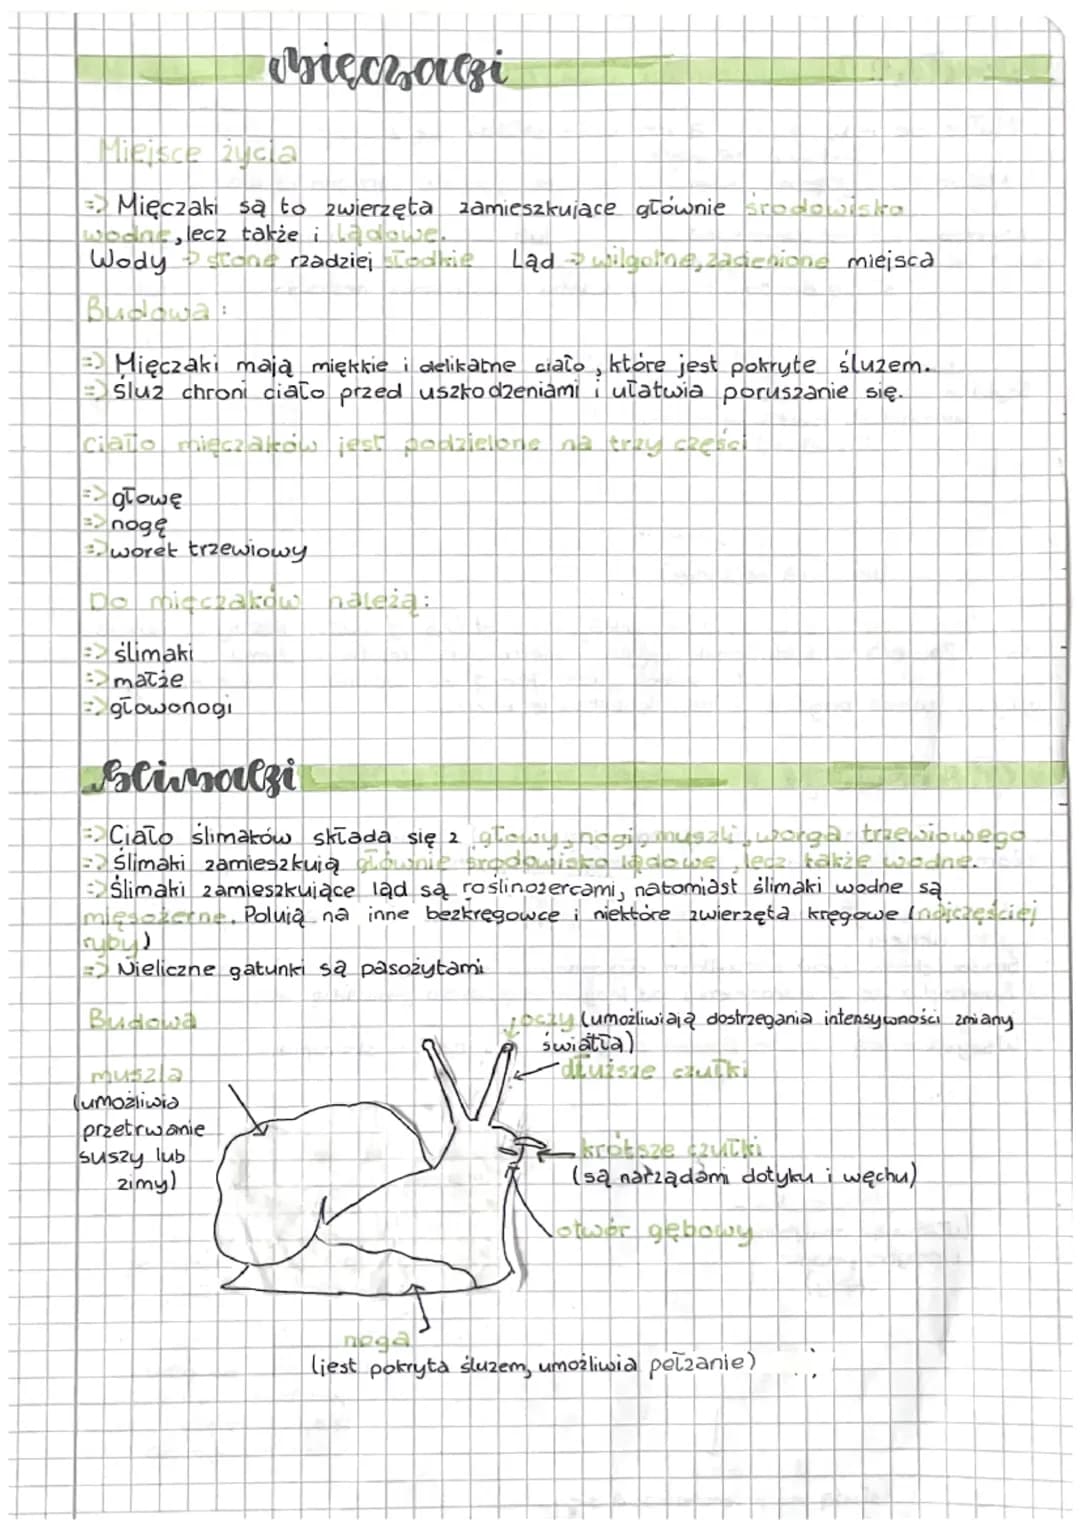 Mięczaki
Miejsce życia
=> Mięczaki są to zwierzęta zamieszkujące głównie środowisko
wodne, lecz także i lądowe.
Wody => słone rzadziej słodkie Ląd => wilgotne, zacienione miejsca
Budowa:
=> Mięczaki mają miękkie i delikatne ciało, które jest pokryte śluzem.
=> Śluz chroni ciało przed uszkodzeniami i ułatwia poruszanie się.
Ciało mięczaków jest podzielone na trzy części
=> głowę
=> nogę
=> worek trzewiowy
Do mięczaków należą:
=> ślimaki
=> małże
=> głowonogi
Ślimaki
=> Ciało ślimaków składa się z głowy, nogi, muszli, worga trzewiowego
=> Ślimaki zamieszkują głównie środowisko lądowe, lecz także wodne.
=> Ślimaki zamieszkujące ląd są roślinożercami, natomiast ślimaki wodne są
mięsożerne. Polują na inne bezkręgowce i niektóre zwierzęta kręgowe (najczęściej
ryby)
=> Nieliczne gatunki są pasożytami
Budowa
oczy (umożliwiają dostrzegania intensywności zmiany
światła)
dłuższe czułki
muszla
(umożliwia
przetrwanie
suszy lub
zimy)
krótsze czułki
(są narządami dotyku i węchu)
otwór gębowy
noga
(jest pokryta śluzem, umożliwia pełzanie)